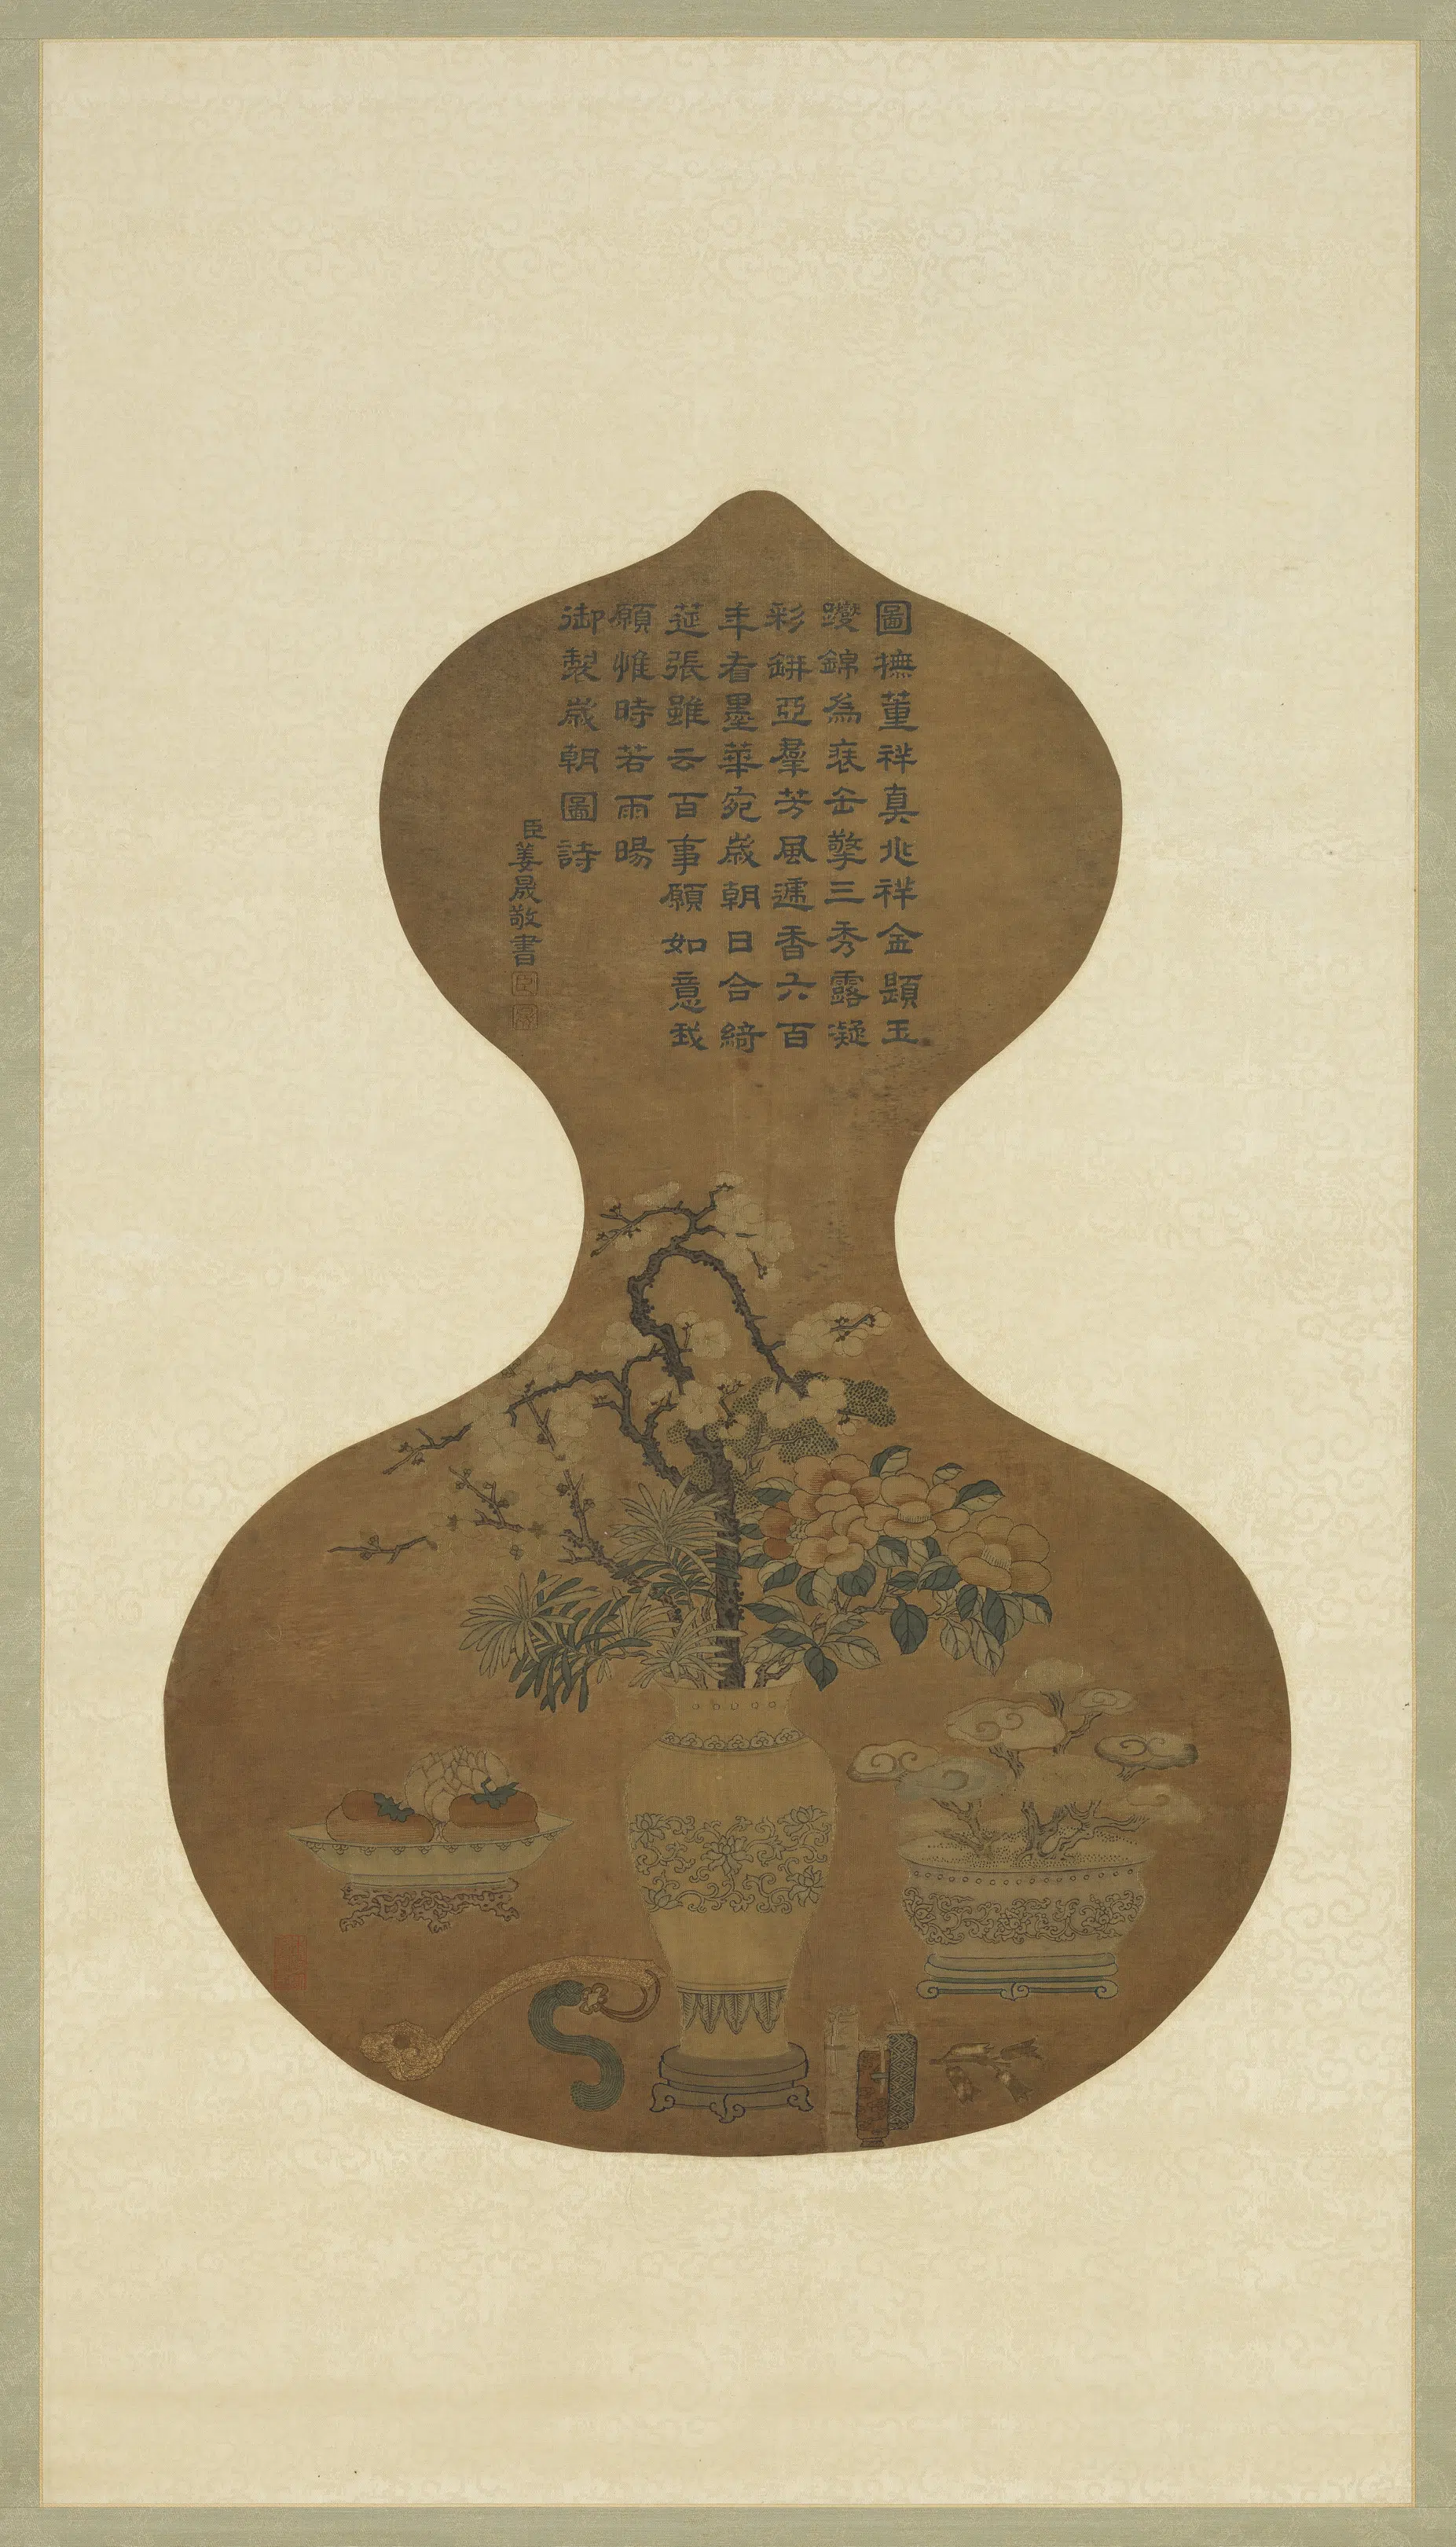 圖撫董祥真兆祥金題玉
躞錦為袠缶擎三秀露凝
彩缾亞羣芳風遞香六百
年看墨華宛歲朝日合綺
莚張雖云百事願如意我
願惟時若雨暘
御製歲朝圖詩
臣姜晟敬書